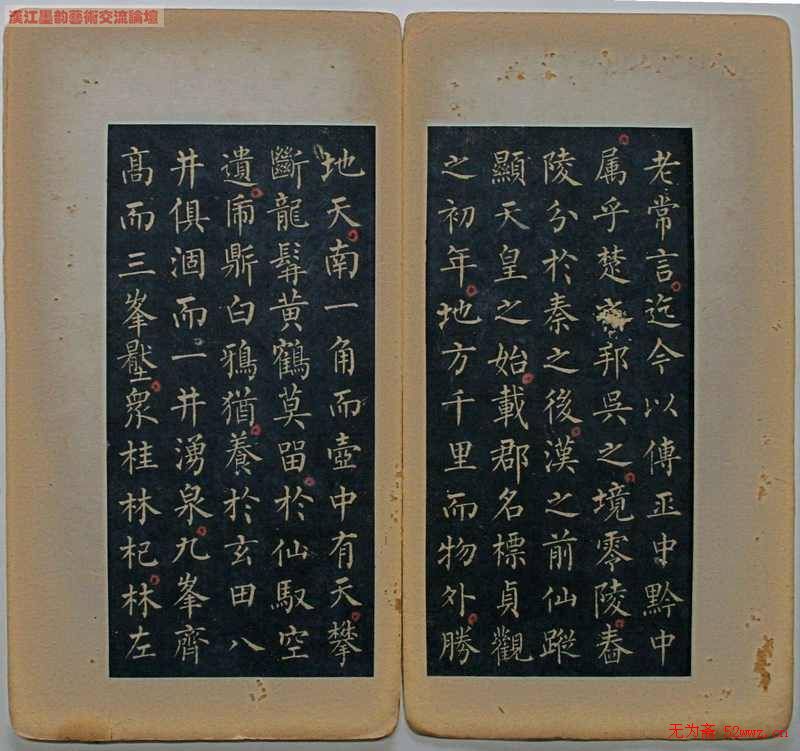 漢江墨韵藝術交流論壇
老常言迄今以傳亚中黔中
属乎楚之邦吳之境零陵
陵分於秦之後漢之前仙蹤
顯天皇之始載郡名標貞觀
之初年地方千里而物外勝
地天南一角而壺中有天攀
斷龍髯黄鶴莫留於仙馭空
遺鼎白鴉猶養於玄田八
井俱涸而一井湧泉九峯齊
髙而三峯壓衆桂林杞林左
无为斋 52wwz.cn